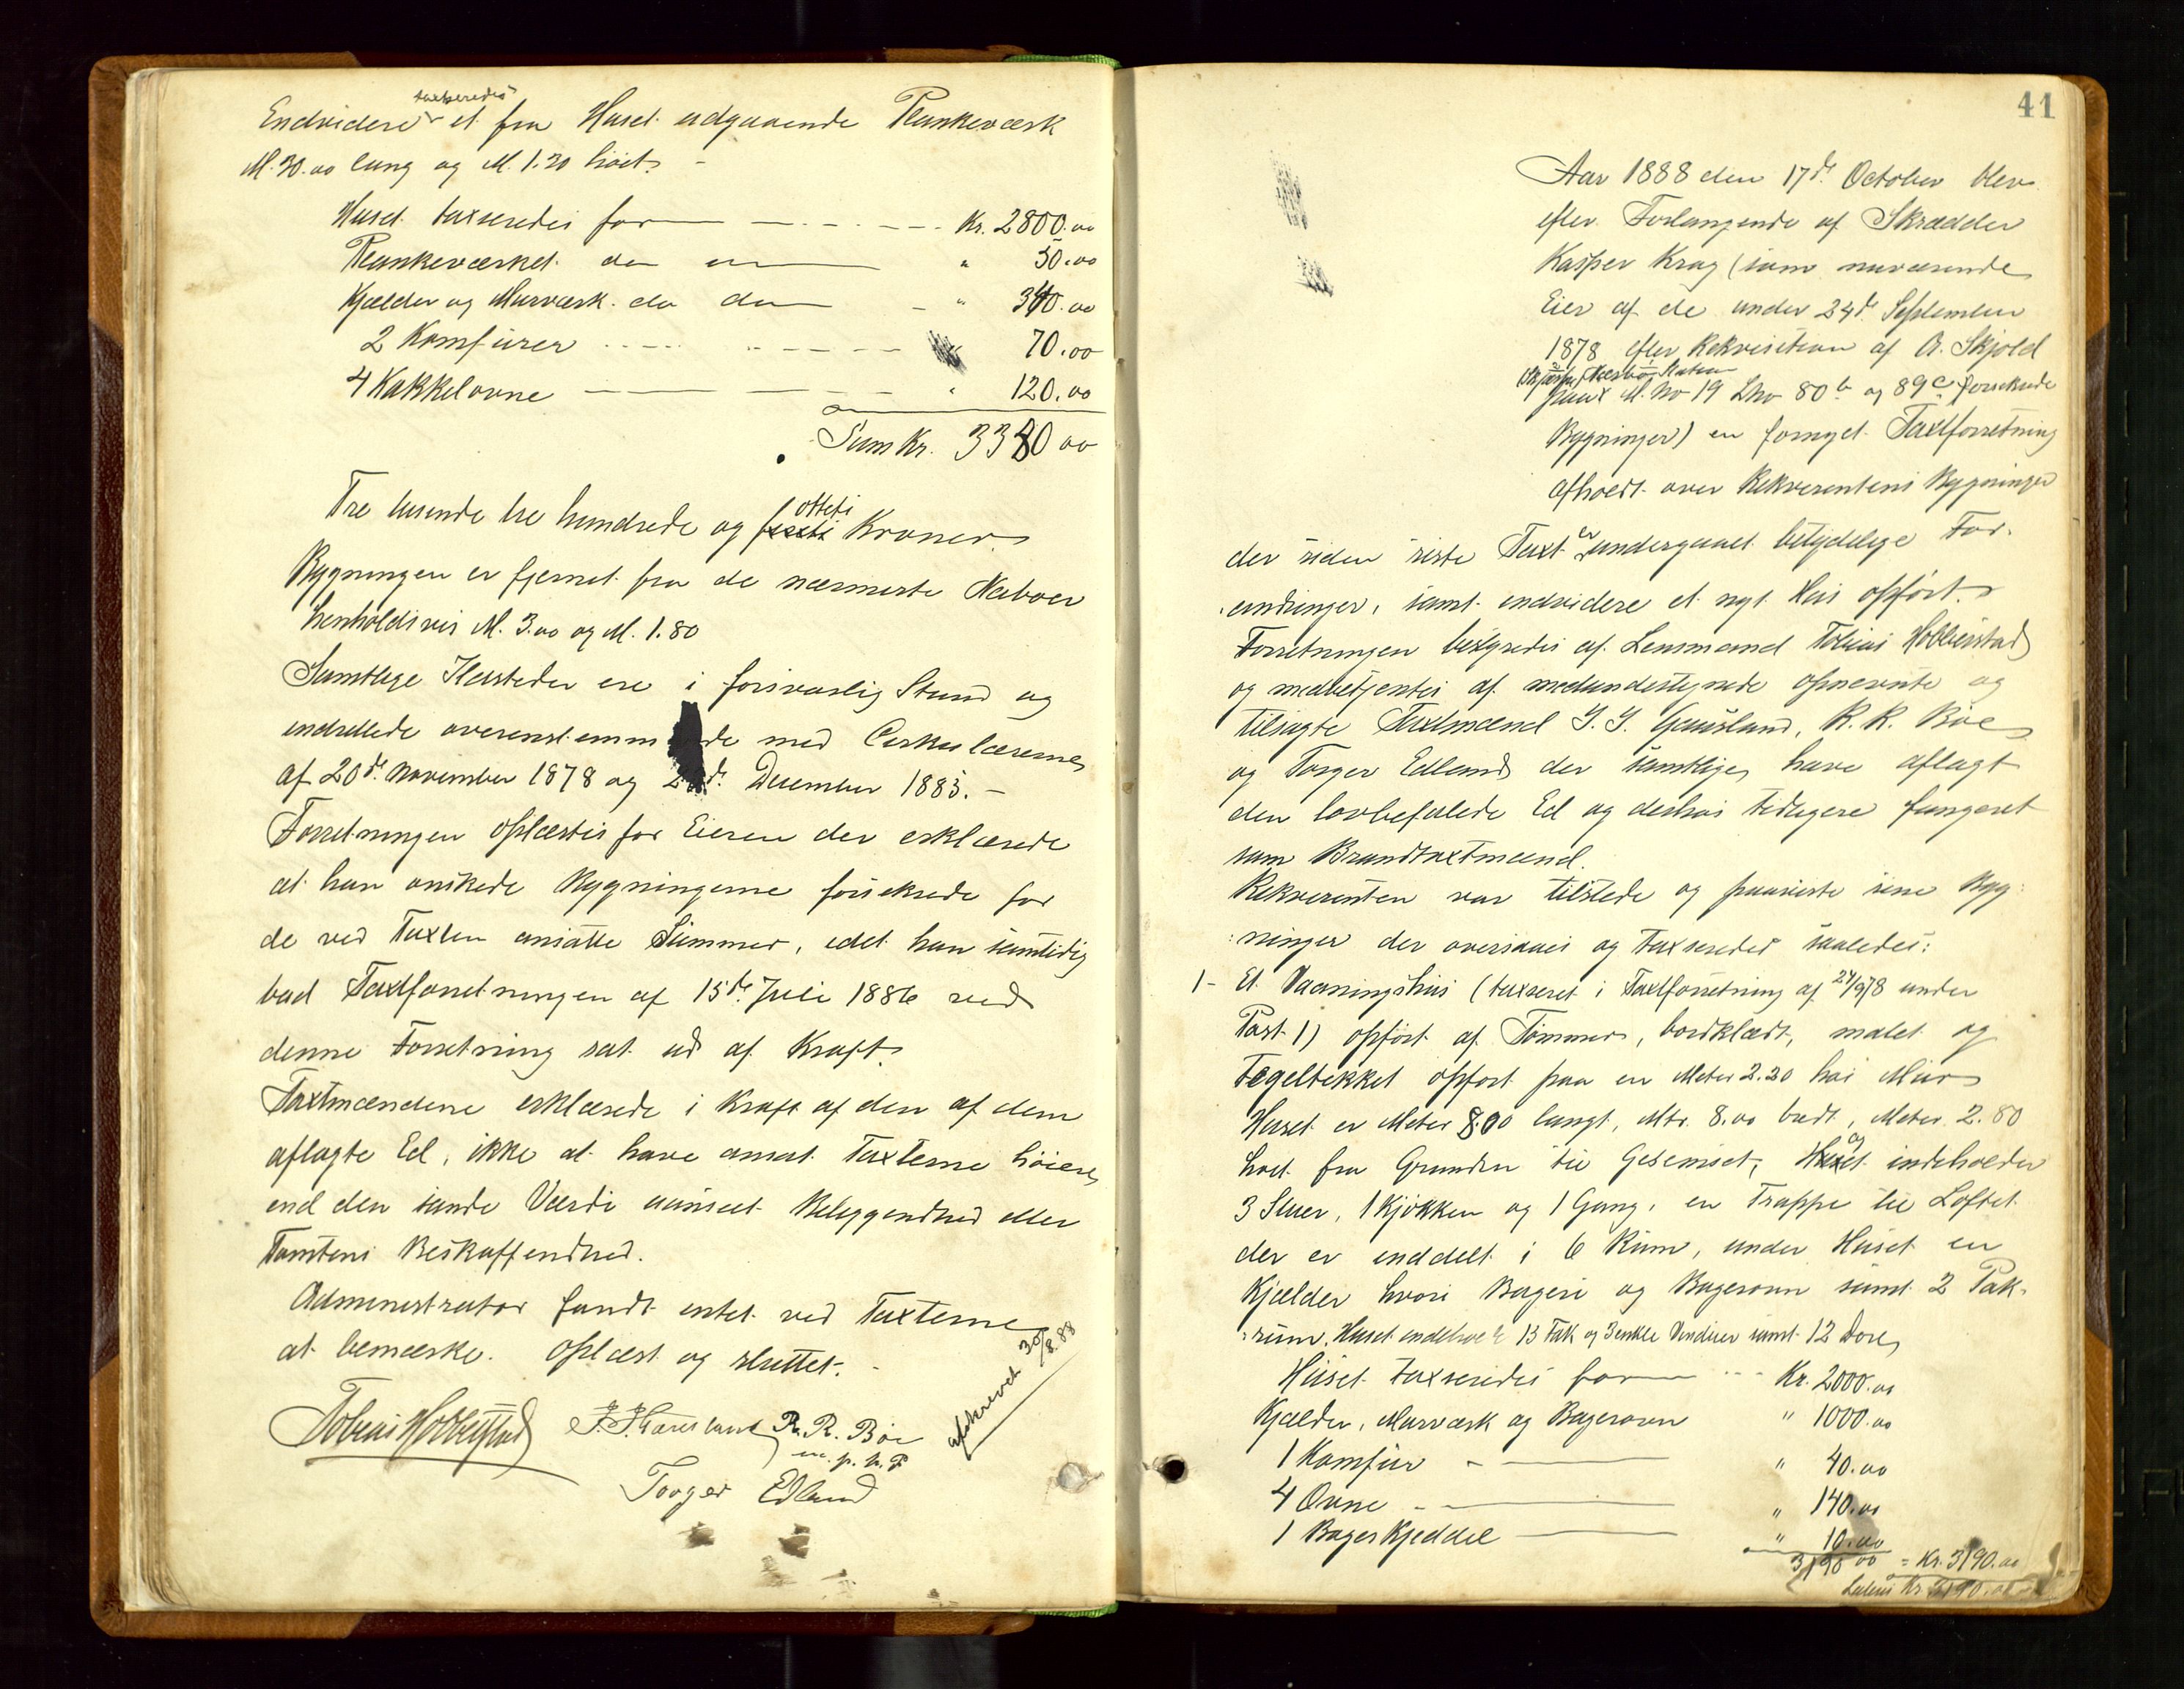 Endvidere taxseredes et fra Huset udgaaende Plankeværk
M. 30.00 lang og M. 1.20 høit. -
Huset taxseredes for Kr. 2800.00
Plankeværket do " 50.00
Kjælder og Murværk do do " 340.00
2 Komfurer " 70.00
4 Kakkelovne " 120.00
Sum Kr. 3380 00
Tre tusende tre hundrede og otteti Kroner.
Bygningen er fjernet fra de nærmeste Naboer
henholdsvis M. 3.00 og M. 1.80
Samtlige Ildsteder ere i forsvarlig Stand og
indrettede overenstemmende med Cirkulærerne
af 20de November 1878 og December 1885. -
Forretningen oplæstes for Eieren der erklærede
at han ønskede Bygningerne forsikrede for
de ved Taxten ansatte Summer, idet han samtidig
bad Taxtforretningen af 15de Juli 1886 ved
denne Forretning sat ud af Kraft.
Taxtmændene erklærede i Kraft af den af dem
aflagte Ed, ikke at have ansat Taxterne høiere
end den sande Værdi uanseet Beliggendhed eller
Tomtens Beskaffendhed.
Administrator fandt intet ved Taxterne
at bemærke. Oplæst og sluttet. -
afskrevet 30/8.88
Tobias Hobberstad J. J. Gausland R. R. Bøe
m. p. h. P
Torger Edland
41
Aar 1888 den 17de October blev
efter Forlangende af Skrædder
Kasper Krag (som nuværende
Eier af de under 24de September
1878 efter Rekvisition af A. Skjold
Station
paa M. No 19 Lno 80b og 89c forsikrede
Bygninger) en fornyet Taxtforretning
afholdt over Rekverentens Bygninger
der siden siste Taxt er undergaaet betydelige For-
andringer, samt endvidere et nyt Hus opført.
Forretningen bestyredes af Lensmand Tobias Hobberstad
og medbetjentes af medundertegnede opnævnte og
tilsagte Taxtmænd J. J. Gausland, R. R. Bøe
og Torger Edland der samtlige have aflagt
den lovbefalede Ed og deshos tidligere fungeret
som Brandtaxtmænd.
Rekverenten var tilstede og paaviste sine Byg-
ninger der oversaaes og taxseredes saaledes:
1- Et Vaaningshus (taxseret i Taxtforretning af 24/9/78 under
Post 1) opført af Tømmer, bordklædt, malet og
Tegeltækket opført paa en Meter 2.20 høi Mur
Huset er Meter 8.00 langt, Mtr. 8.00 bredt, Meter 2.80
høit fra Grunden til Gesemset, og indeholder
3 Stuer, 1 Kjøkken og 1 Gang, en Trappe til Loftet
der er inddelt i 6 Rum, under Huset en
Kjælder hvori Bageri og Bagerovn samt 2 Pak-
rum. Huset indeholder 13 Fak og 3 enkle Vinduer samt 12 Døre
Huset taxseredes for Kr. 2000.00
Kjælder, Murværk og Bagerovn " 1000.00
1 Komfur " 40.00
4 Ovne " 140.00
1 Bager Kjeddel " 10.00
3190 00 = Kr. 3190.00
Lateris Kr 3190.00